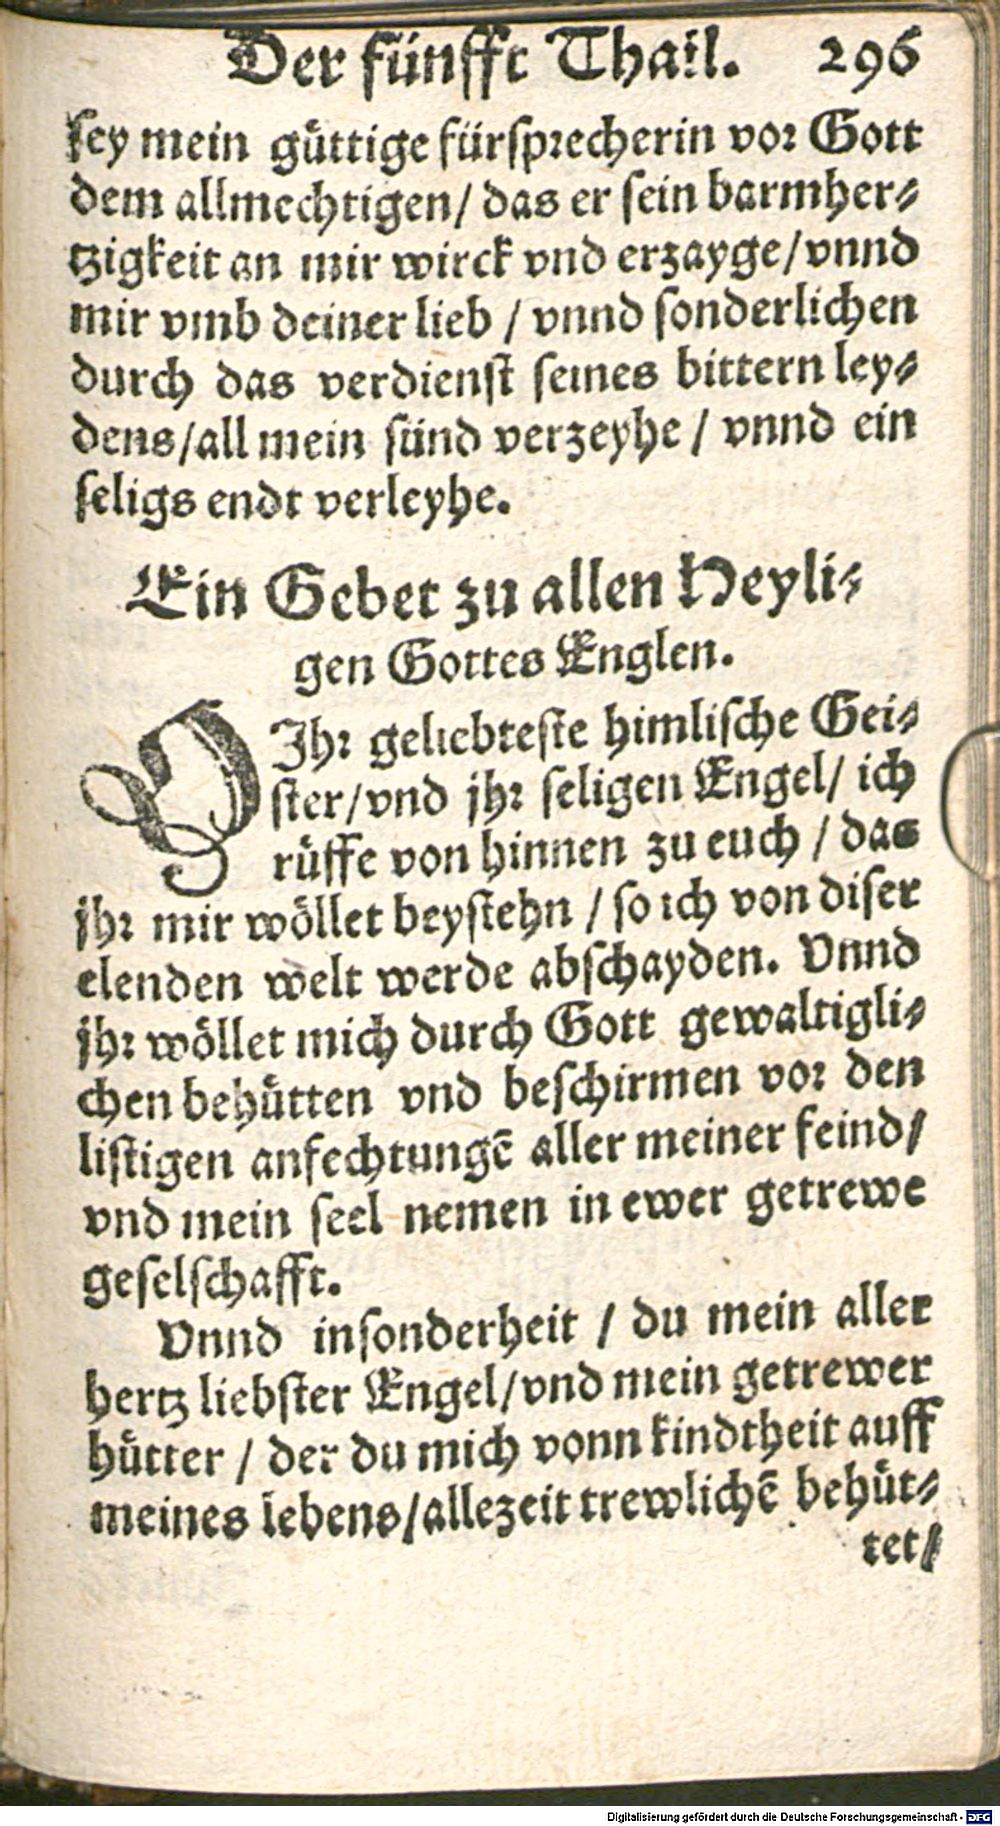 Der fünfft Thail. 296
ſey mein gůttige fürſprecherin vor Gott
dem allmechtigen/ das er ſein barmher⸗
tzigkeit an mir wirck vnd erzayge/vnnd
mir vmb deiner lieb / vnnd ſonderlichen
durch das verdienſt ſeines bittern ley⸗
dens/all mein ſünd verzeyhe / vnnd ein
ſeligs endt verleyhe.
Ein Gebet zu allen Heyli⸗
gen Gottes Englen.
O Ihr geliebteſte himliſche Gei⸗
ſter/vnd jhr ſeligen Engel/ ich
rüffe von hinnen zu euch / das
jhr mir wöllet beyſtehn / ſo ich von diſer
elenden welt werde abſchayden. Vnnd
jhr wöllet mich durch Gott gewaltigli⸗
chen behůtten vnd beſchirmen vor den
liſtigen anfechtungē aller meiner feind/
vnd mein ſeel nemen in ewer getrewe
geſelſchafft.
Vnnd inſonderheit / du mein aller
hertz liebſter Engel/vnd mein getrewer
hůtter / der du mich vonn kindtheit auff
meines lebens/allezeit trewlichē behůt⸗
tet/
Digitalisierung gefördert durch die Deutsche Forschungsgemeinschaft - DFG